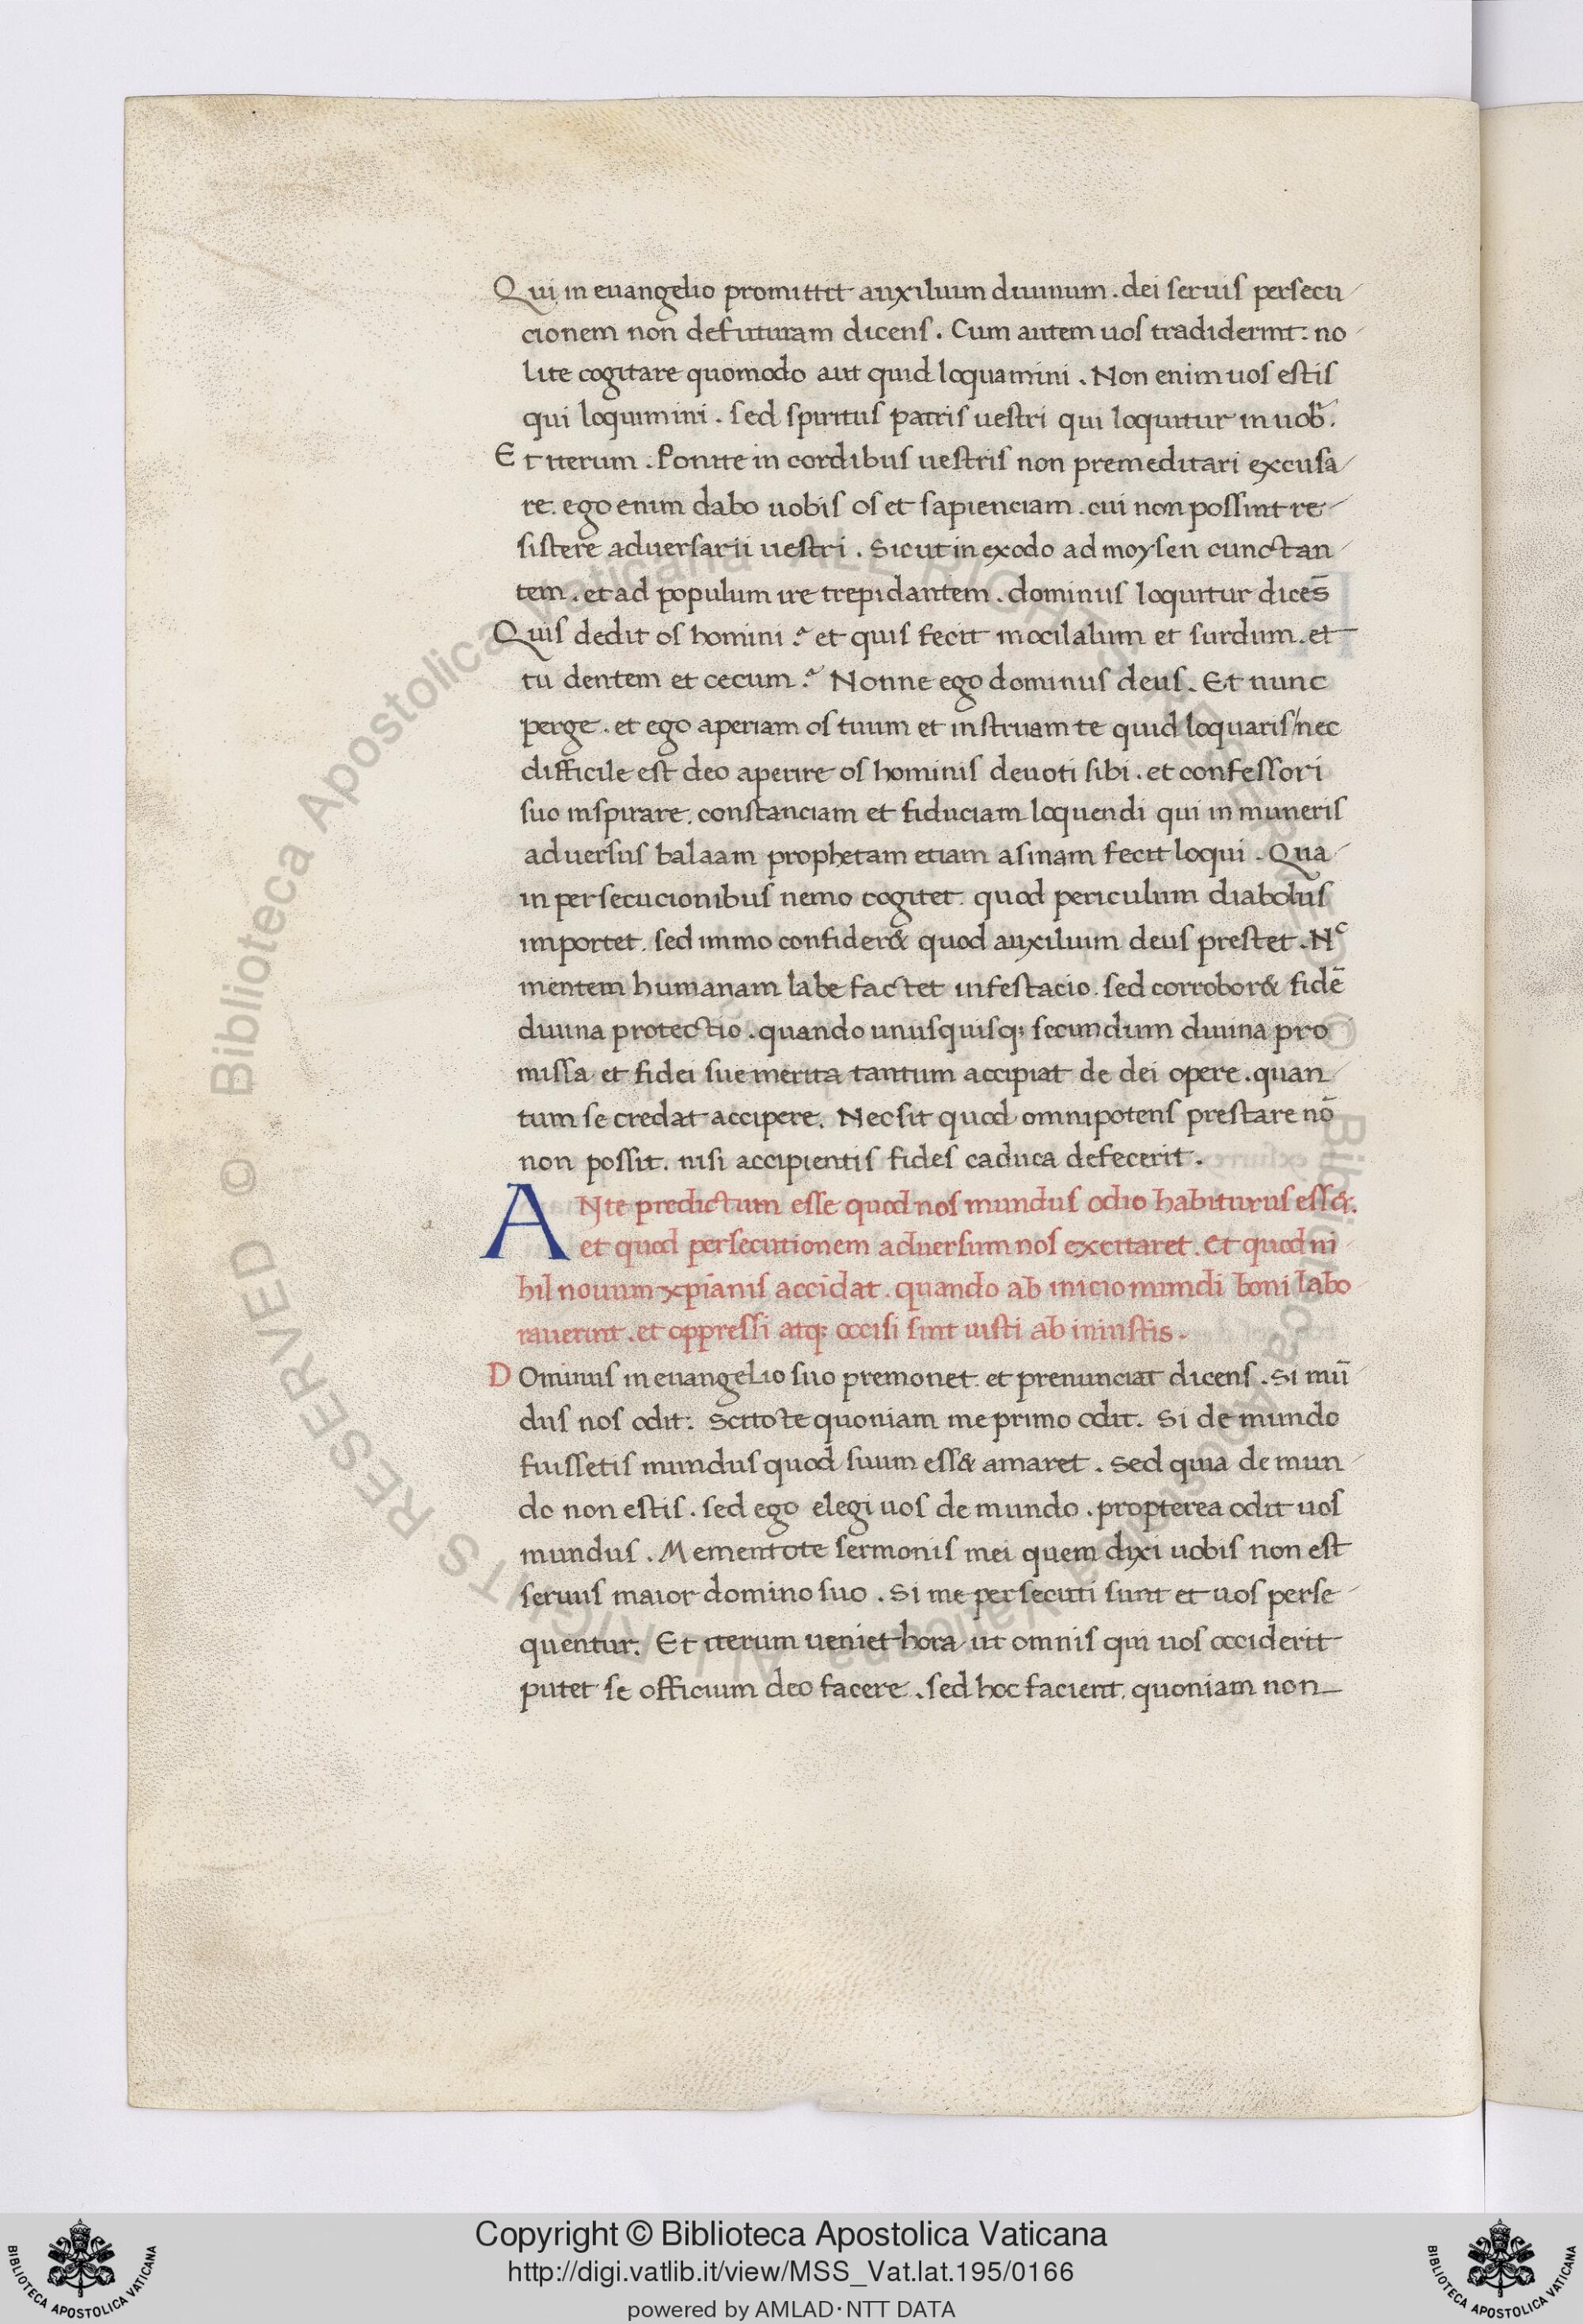 Qui in euangelio promittit auxilium diuinum . dei seruis persecu
cionem non defuturam dicens . Cum autem uos tradiderint : no
lite cogitare quomodo aut quid loquamini . Non enim uos estis
qui loquimini . sed spiritus patris uestri qui loquitur in uob .
Et iterum . Ponite in cordibus uestris non premeditari excusa
re . ego enim dabo uobis os et sapienciam . cui non possint re
sistere aduersarii uestri . Sicut in exodo ad moysen cunctan
tem . et ad populum ire trepidantem . dominus loquitur dicēs
Quis dedit os homini ? et quis fecit mocilalum et surdum . et
tu dentem et cecum ? Nonne ego dominus deus . Et nunc
perge . et ego aperiam os tuum et instruam te quid loquaris / nec
difficile est deo aperire os hominis deuoti sibi . et confessori
suo inspirare . constanciam et fiduciam loquendi qui in muneris
aduersus balaam prophetam etiam asinam fecit loqui . Qua
in persecucionibus nemo cogitet . quod periculum diabolus
importet . sed immo confider& quod auxilium deus prestet . Nᶜ
mentem humanam labe factet infestacio . sed corrobor& fidē
diuina protectio . quando unusquisq; secundum diuina pro
missa et fidei sue merita tantum accipiat de dei opere . quan
tum se credat accipere . Nec sit quod omnipotens prestare nō
non possit . nisi accipientis fides caduca defecerit .
ANte predictum esse quod nos mundus odio habiturus ess& .
et quod persecutionem aduersum nos excitaret . Et quod ni
hil nouum xp̄ianis accidat . quando ab inicio mundi boni labo
rauerint . et oppressi atq; occisi sint iusti ab iniustis .
DOminus in euangelio suo premonet . et prenunciat dicens . Si mū
dus nos odit : Scitote quoniam me primo odit . Si de mundo
fuissetis mundus quod suum ess& amaret . Sed quia de mun
do non estis . sed ego elegi uos de mundo . propterea odit uos
mundus . Mementote sermonis mei quem dixi uobis non est
seruus maior domino suo . Si me persecuti sunt et uos perse
quentur . Et iterum ueniet hora ut omnis qui uos occiderit
putet se officium deo facere . sed hoc facient . quoniam non
© Biblioteca Apostolica Vaticana ALL RIGHTS RESERVED
© Biblioteca Apostolica Vaticana ALL RIGHTS RESERVED
Copyright © Biblioteca Apostolica Vaticana
http://digi.vatlib.it/view/MSS_Vat.lat.195/0166
powered by AMLAD·NTT DATA
BIBLIOTECA APOSTOLICA VATICANA
BIBLIOTECA APOSTOLICA VATICANA